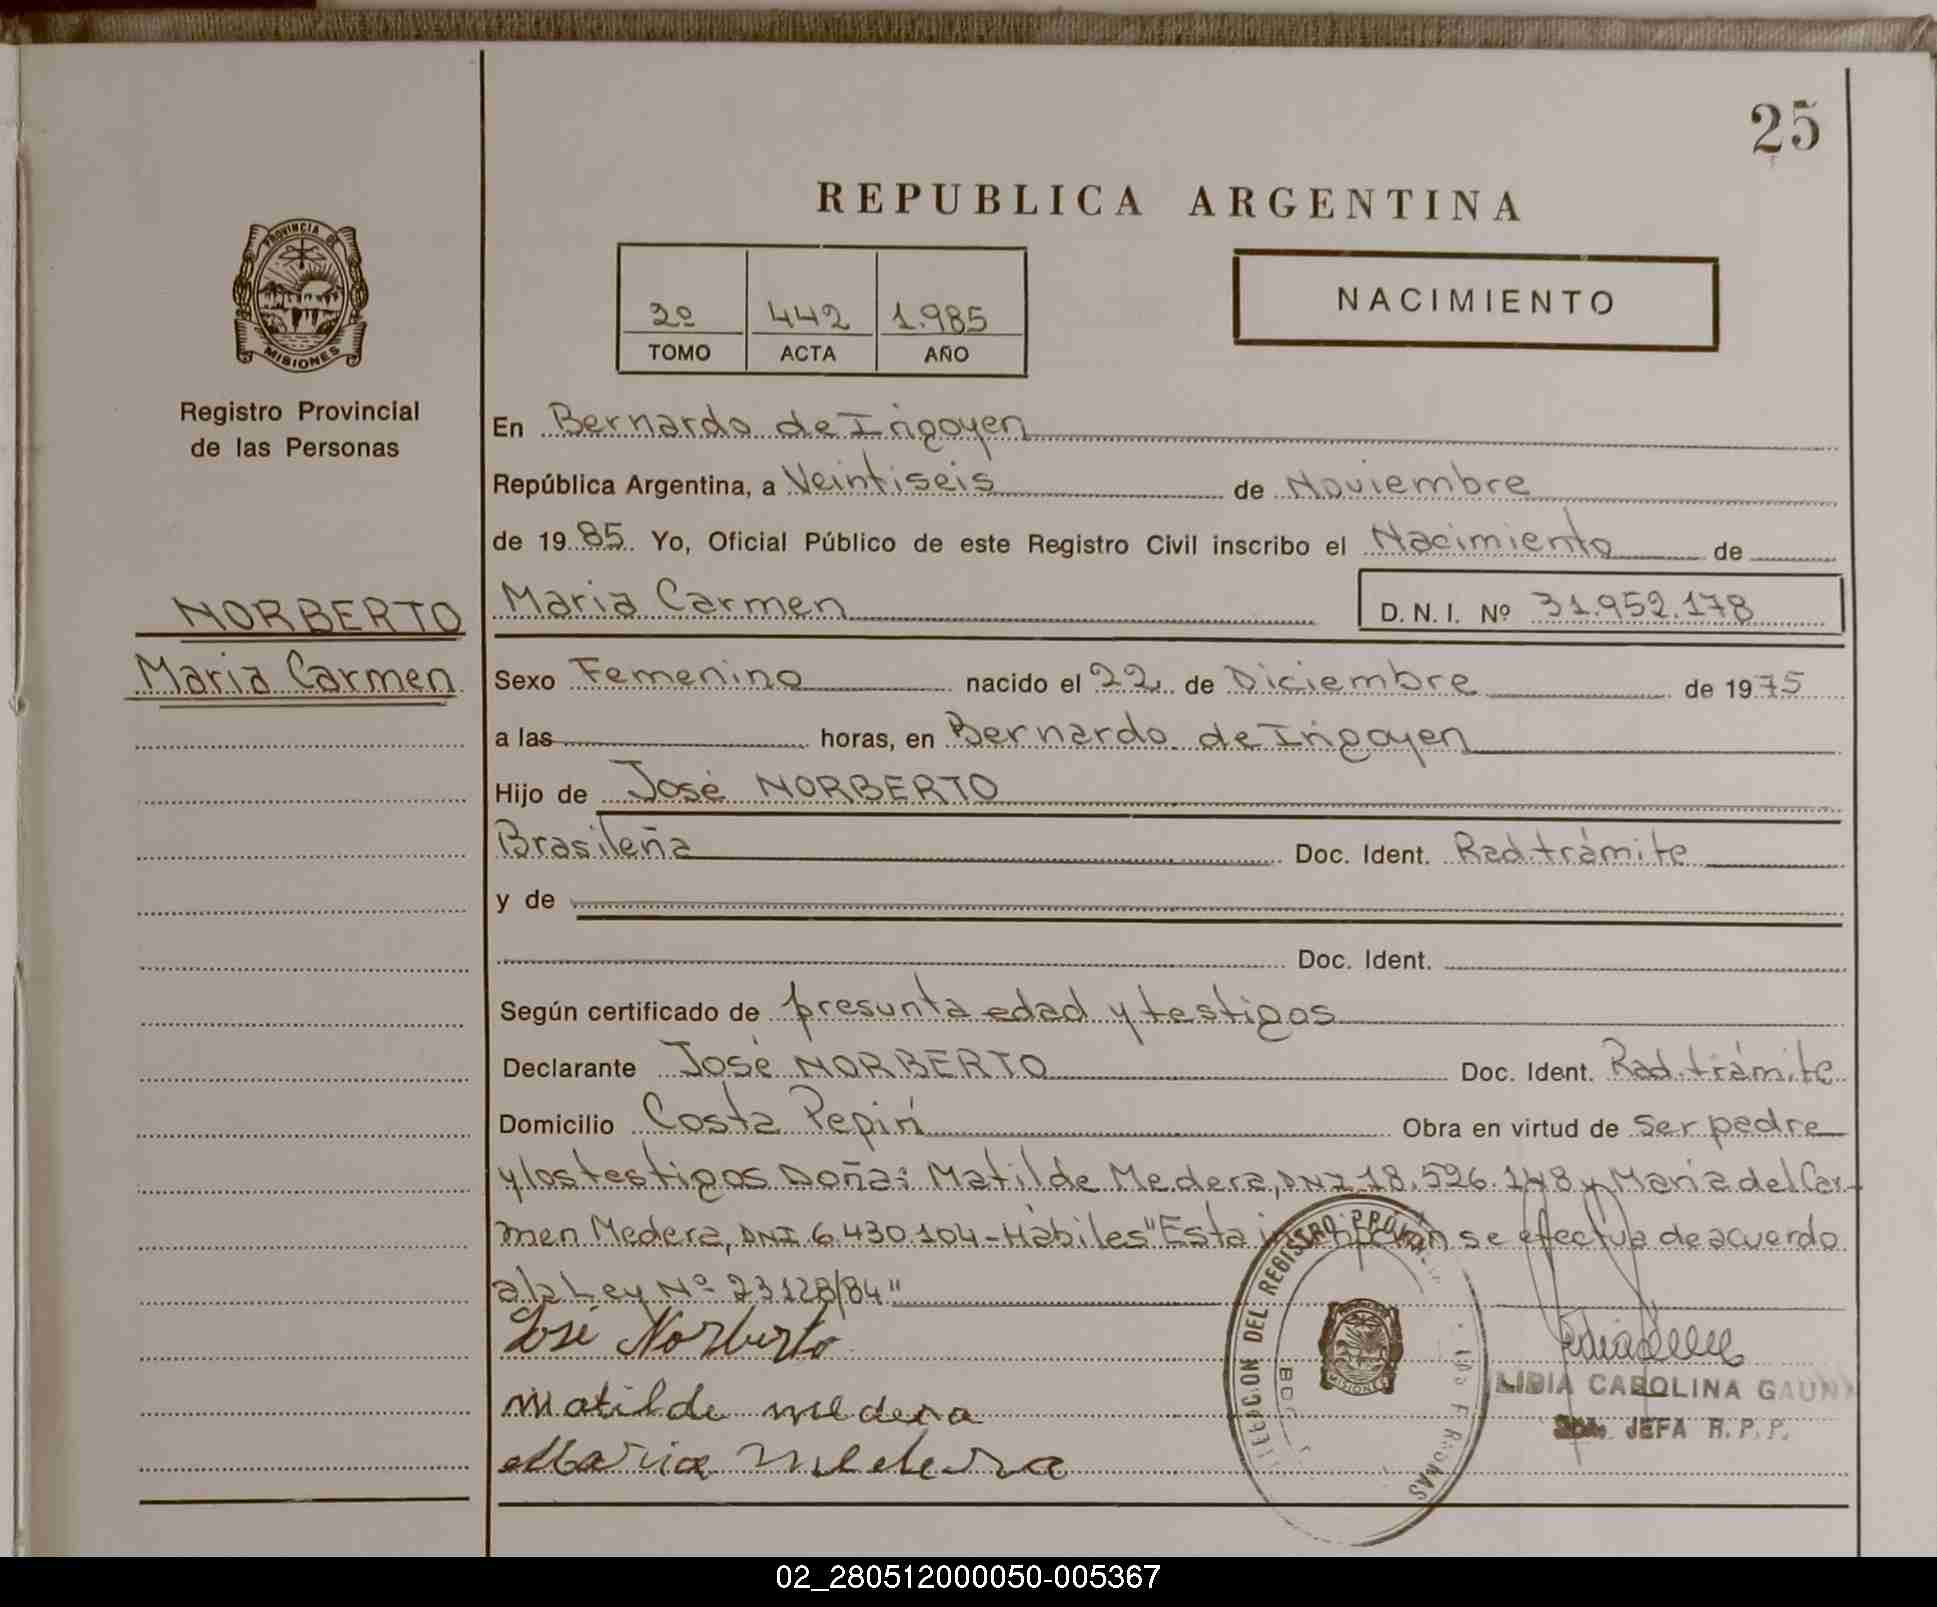 25
REPUBLICA ARGENTINA
PROVINCIA DE
MISIONES
Registro Provincial
de las Personas
2º 442 1.985
TOMO ACTA AÑO
NACIMIENTO
En Bernardo de Irigoyen
República Argentina, a Veintiseis de Noviembre
de 1985 Yo, Oficial Público de este Registro Civil inscribo el Nacimiento de
NORBERTO
Maria Carmen
Maria Carmen D. N. I. Nº 31.952.178
Sexo Femenino nacido el 22 de Diciembre de 1975
a las horas, en Bernardo de Irigoyen
Hijo de José NORBERTO
Brasileña Doc. Ident. Rad. trámite
y de
Doc. Ident.
Según certificado de presunta edad y testigos
Declarante José NORBERTO Doc. Ident. Rad. trámite
Domicilio Costa Pepirí Obra en virtud de ser padre
y los testigos Doña: Matilde Medera, DNI 18.526.148 y María del Car-
men Medera, DNI 6.430.104 - Hábiles "Esta inscripción se efectua de acuerdo
a la Ley Nº 23128/84"
José Norberto
Matilde medera
Maria Medera
DEL REGISTRO
MISIONES
LIDIA CAROLINA GAUN
JEFA R. P. P.
02_280512000050-005367